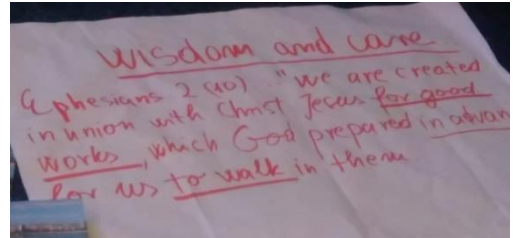 wisdom and care
Ephesians 2 (10) "we are created
in union with Christ Jesus for good
works, which God prepared in advan
for us to walk in them